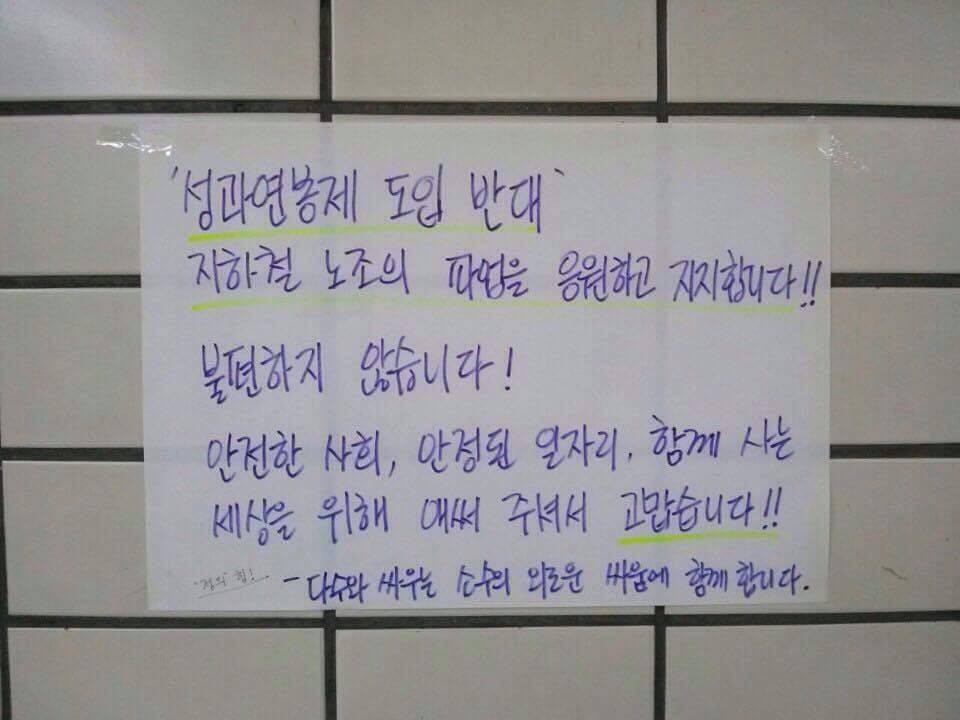 '성과연봉제 도입 반대'
지하철 노조의 파업을 응원하고 지지합니다!!
불편하지 않습니다!
안전한 사회, 안정된 일자리. 함께 사는
세상을 위해 애써 주셔서 고맙습니다!!
- 다수와 싸우는 소수의 외로운 싸움에 함께 합니다.
"정의" 힘!